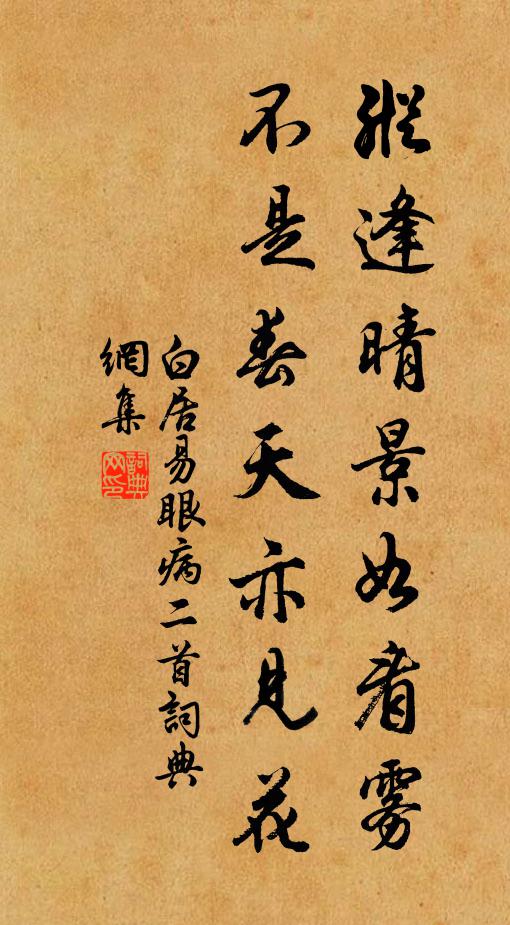 縱逢晴景如看霧
不是春天亦見花
白居易眼病二首詞典
網集
詞典
网印